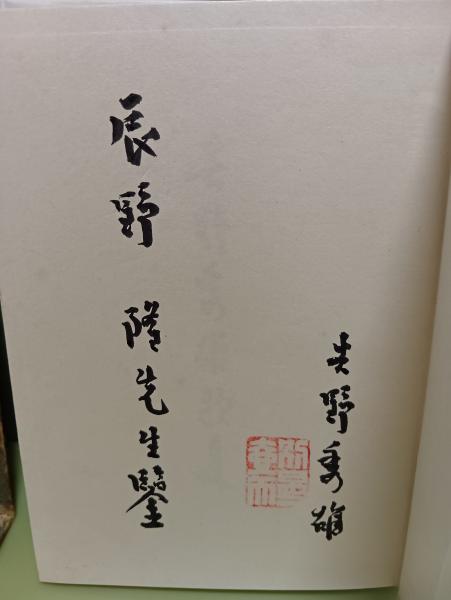 辰野 隆先生鑒
吉野秀雄